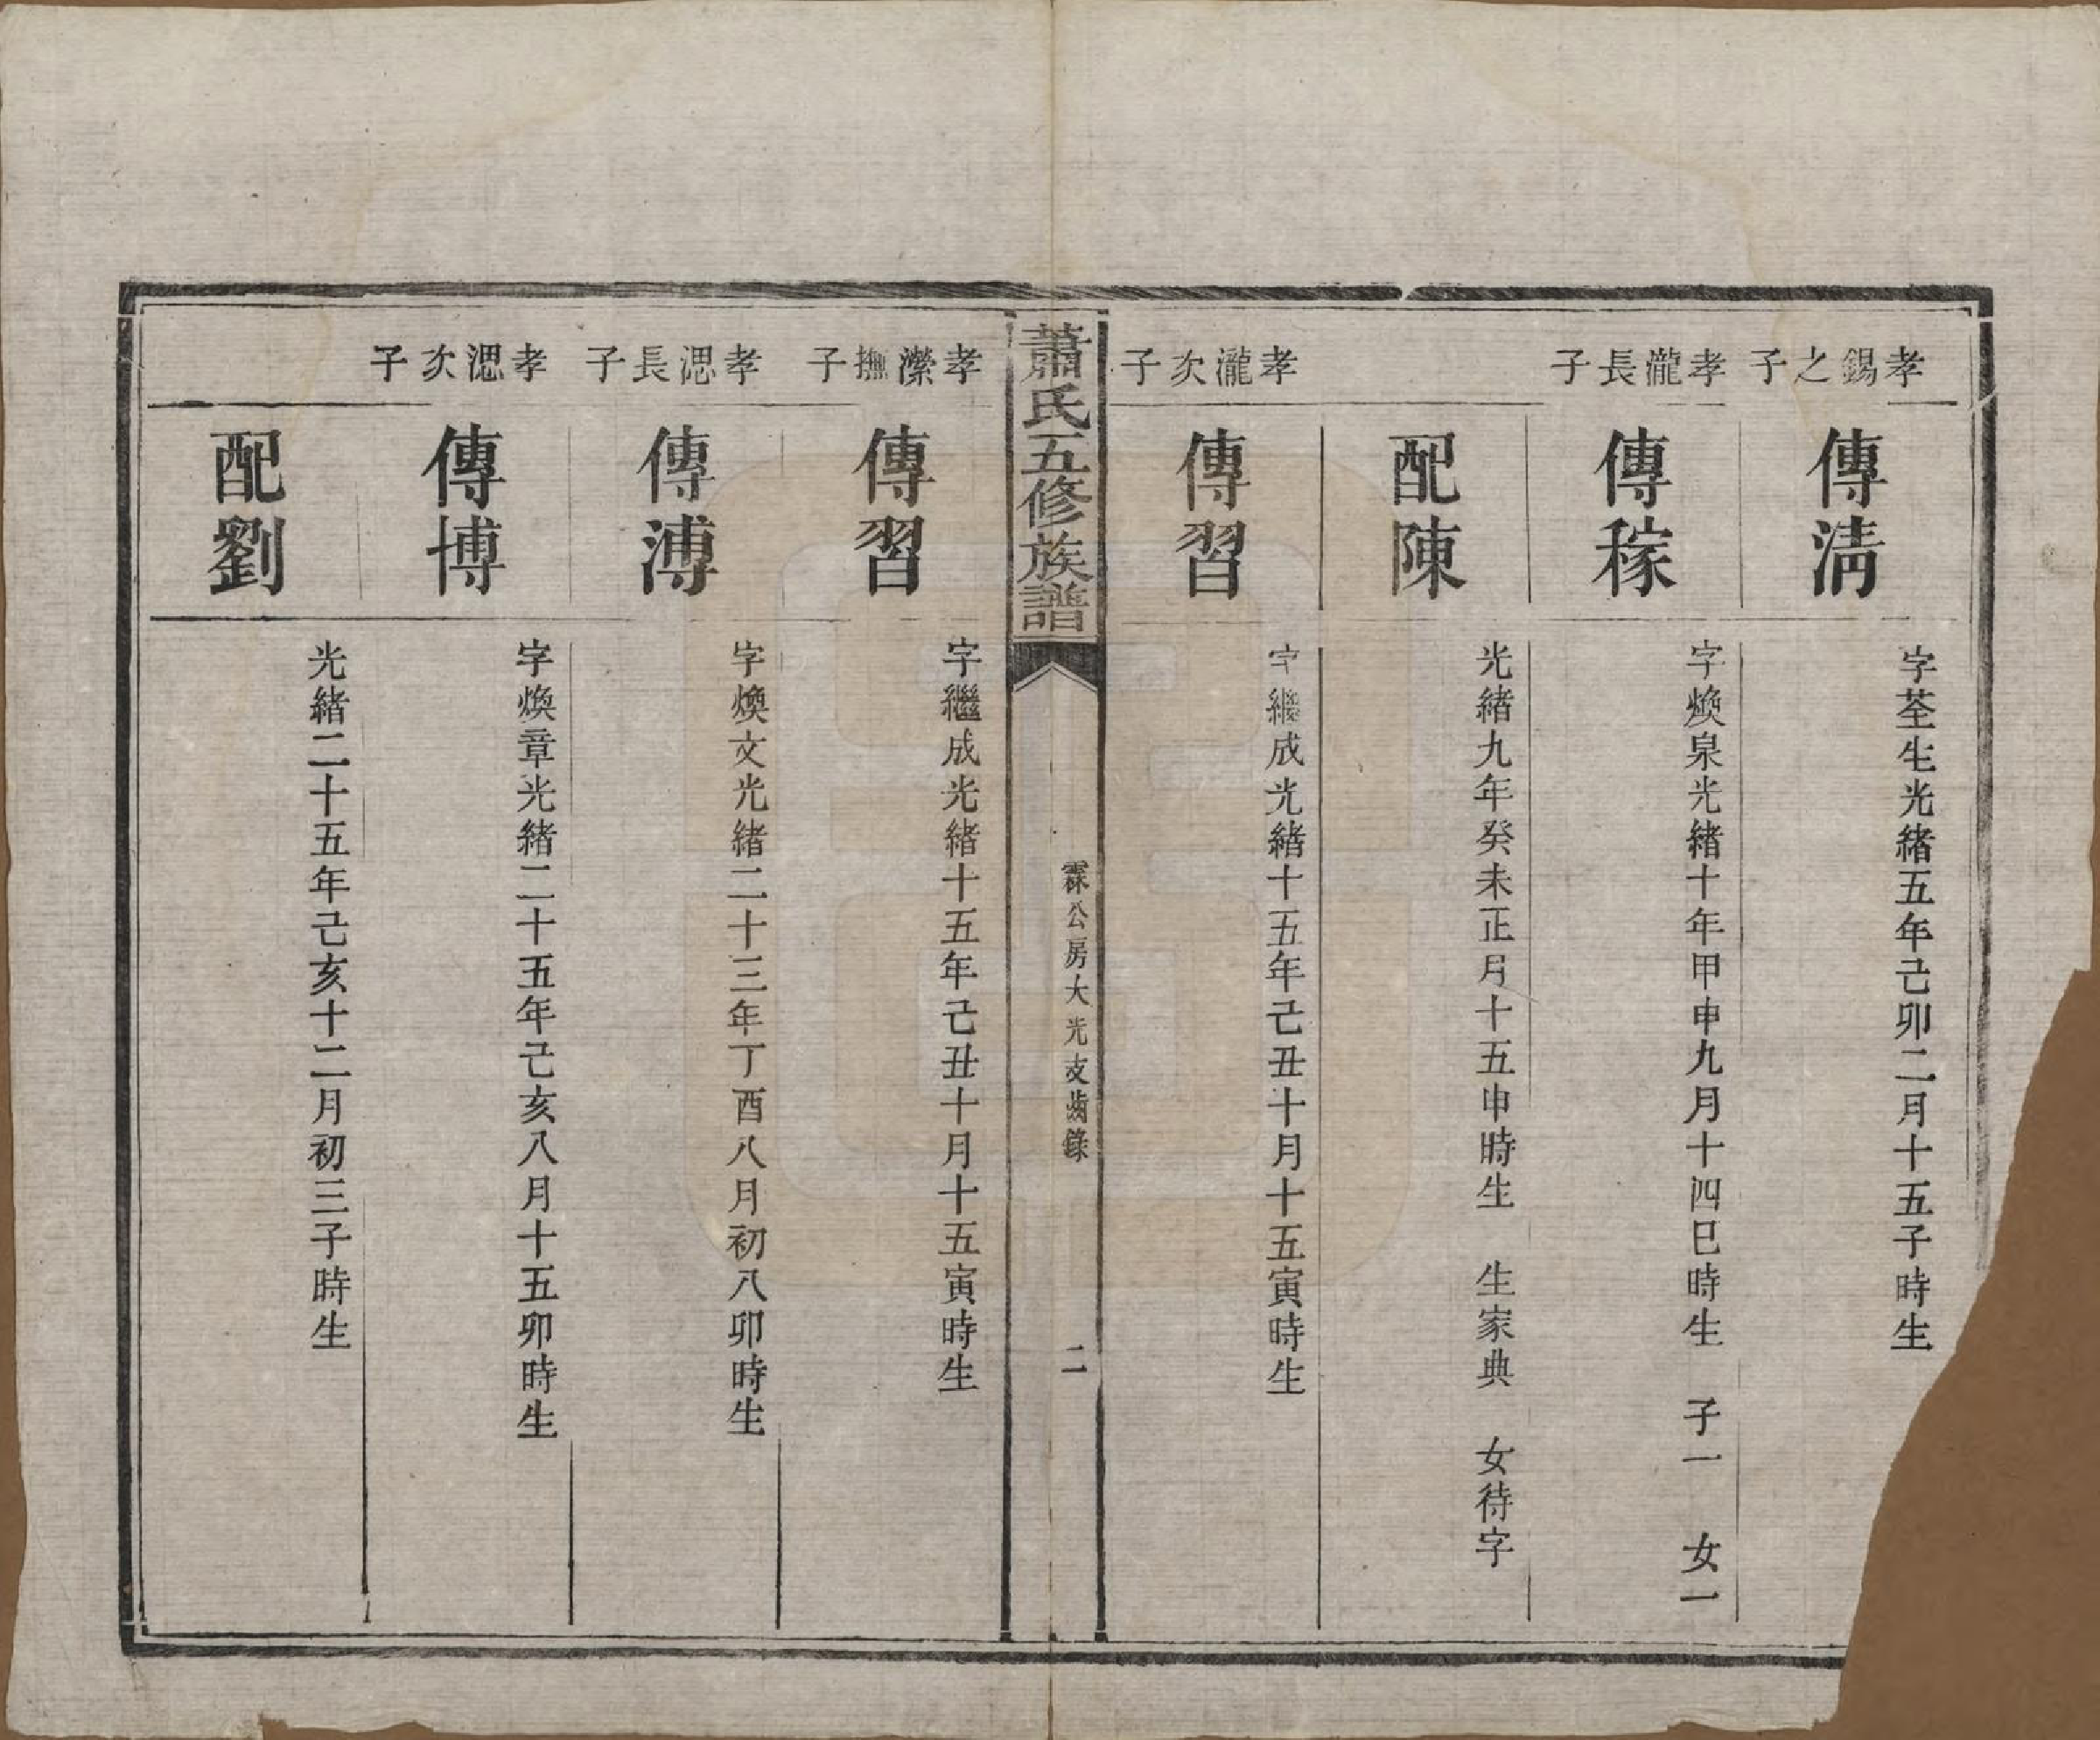 孝錫之子
傳淸
字荃生光緒五年己卯二月十五子時生
孝瀧長子
傳稼
字煥泉光緒十年甲申九月十四巳時生 子一 女一
配陳
光緒九年癸未正月十五申時生 生家典 女待字
孝瀧次子
傳習
字繼成光緒十五年己丑十月十五寅時生
蕭氏五修族譜
霖公房大光支齒錄
二
孝瀠撫子
傳習
字繼成光緒十五年己丑十月十五寅時生
孝濍長子
傳溥
字煥文光緒二十三年丁酉八月初八卯時生
孝濍次子
傳博
字煥章光緒二十五年己亥八月十五卯時生
配劉
光緒二十五年己亥十二月初三子時生